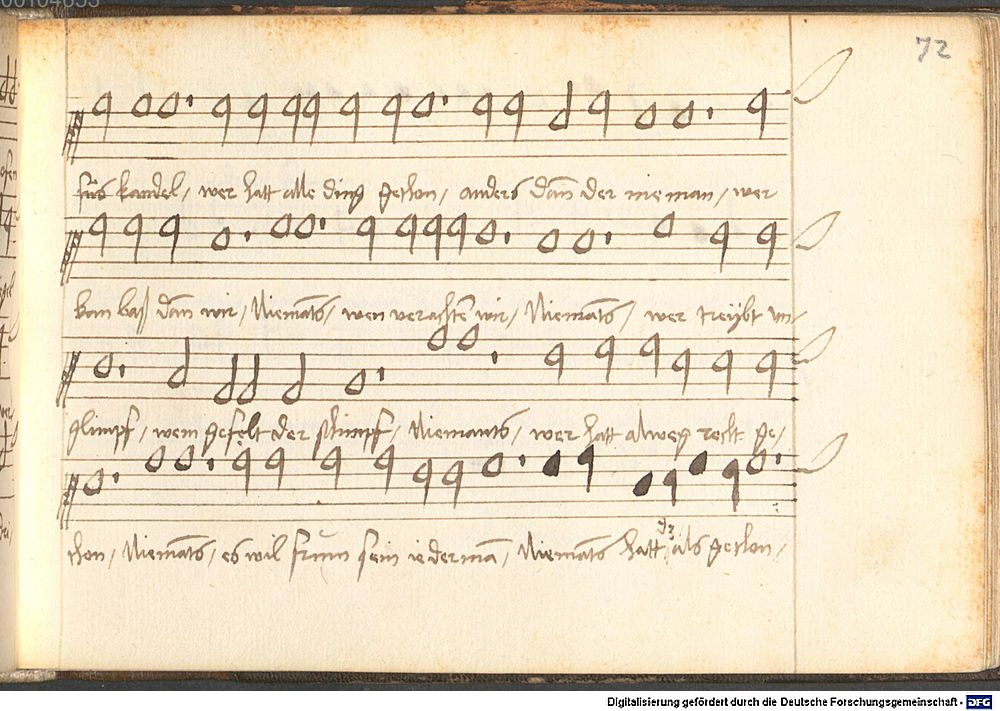 00104633
72
füs kandel, wer hatt alle ding gethon, anders dan̄ der nieman, wer
kan baß dan̄ wir, Niemāts, wen verachtē wir, Niemāts, wer treÿbt vn-
glimpf, wem gefelt der schimpf, Niemants, wer hatt alweg recht ge-
thon, Niemāts, es wil frum sein iederman̄, Niemāts hatt als gethon,
Digitalisierung gefördert durch die Deutsche Forschungsgemeinschaft - DFG